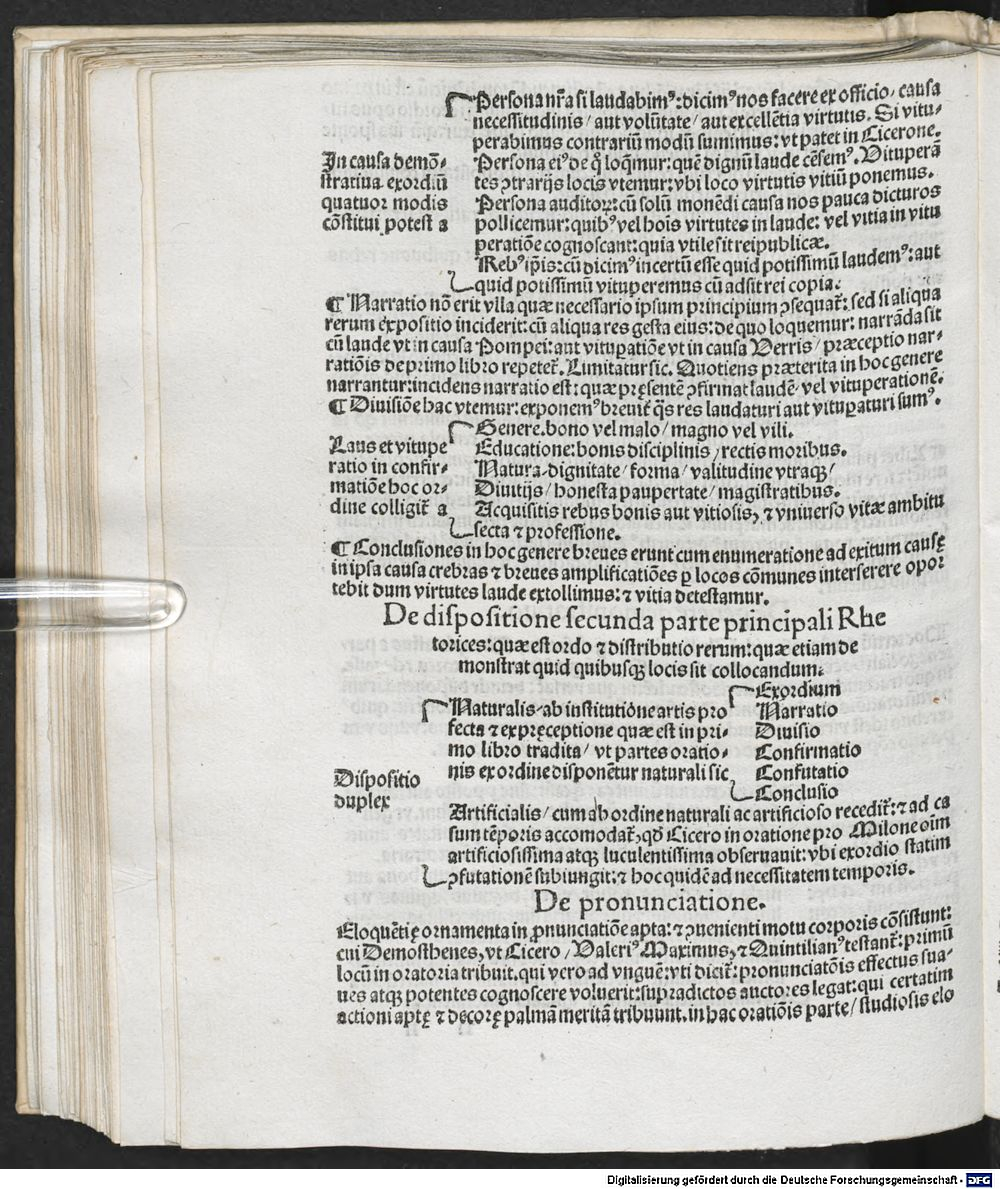 Persona nr̃a si laudabimꝰ: dicimꝰ nos facere ex officio / causa
necessitudinis / aut volũtate / aut excellẽtia virtutis. Si vitu-
perabimus contrariũ modũ sumimus: vt patet in Cicerone.
In causa demõ-
stratiua exordiũ
quatuor modis
cõstitui potest a
Persona eiꝰ de q̃ loq̃mur: quẽ dignũ laude cẽsemꝰ. Vituperã
tes ꝯtrarijs locis vtemur: vbi loco virtutis vitiũ ponemus.
Persona auditoꝝ: cũ solũ monẽdi causa nos pauca dicturos
pollicemur: quibꝰ vel hoĩs virtutes in laude: vel vitia in vitu
peratiõe cognoscant: quia vtile sit reipublicæ.
Rebꝰ ip̃is: cũ dicimꝰ incertũ esse quid potissimũ laudemꝰ: aut
quid potissimũ vituperemus cũ adsit rei copia.
¶ Narratio nõ erit vlla quæ necessario ipsum principium ꝯsequat̃: sed si aliqua
rerum expositio inciderit: cũ aliqua res gesta eius: de quo loquemur: narrãda sit
cũ laude vt in causa Pompei: aut vituꝑatiõe vt in causa Verris / præceptio nar-
ratiõis de primo libro repetet̃. Limitatur sic. Quotiens præterita in hoc genere
narrantur: incidens narratio est: quæ pręsentẽ ꝯfirmat laudẽ / vel vituperationẽ.
¶ Diuisiõe hac vtemur: exponemꝰ breuit̃ q̃s res laudaturi aut vituꝑaturi sumꝰ.
Laus et vitupe
ratio in confir-
matiõe hoc or-
dine colligit̃ a
Genere. bono vel malo / magno vel vili.
Educatione: bonis disciplinis / rectis moribus.
Natura. dignitate / forma / valitudine vtraqꝫ /
Diuitijs / honesta paupertate / magistratibus.
Acquisitis rebus bonis aut vitiosis, ⁊ vniuerso vitæ ambitu
secta ⁊ professione.
¶ Conclusiones in hoc genere breues erunt cum enumeratione ad exitum causę
in ipsa causa crebras ⁊ breues amplificatiões ꝑ locos cõmunes interserere opor
tebit dum virtutes laude extollimus: ⁊ vitia detestamur.
De dispositione secunda parte principali Rhe
torices: quæ est ordo ⁊ distributio rerum: quæ etiam de
monstrat quid quibusqꝫ locis sit collocandum.
Dispositio
duplex
Naturalis / ab institutione artis pro
fecta ⁊ ex pręceptione quæ est in pri-
mo libro tradita / vt partes oratio-
nis ex ordine disponẽtur naturali sic
Exordium
Narratio
Diuisio
Confirmatio
Confutatio
Conclusio
Artificialis / cum ab ordine naturali ac artificioso recedit̃: ⁊ ad ca
sum tẽporis accomodat̃, qď Cicero in oratione pro Milone oĩm
artificiosissima atqꝫ luculentissima obseruauit: vbi exordio statim
ꝯfutationẽ subiungit: ⁊ hoc quidẽ ad necessitatem temporis.
De pronunciatione.
Eloquẽtię ornamenta in ꝓnunciatiõe apta: ⁊ ꝯuenienti motu corporis cõsistunt:
cui Demosthenes, vt Cicero / Valeriꝰ Maximus, ⁊ Quintilianꝰ testant̃: primũ
locũ in oratoria tribuit. qui vero ad vnguẽ: vti dicit̃: pronunciatõis effectus sua-
ues atqꝫ potentes cognoscere voluerit: supradictos auctores legat: qui certatim
actioni aptę ⁊ decorę palmã meritã tribuunt. in hac oratiõis parte / studiosis elo
Digitalisierung gefördert durch die Deutsche Forschungsgemeinschaft - DFG